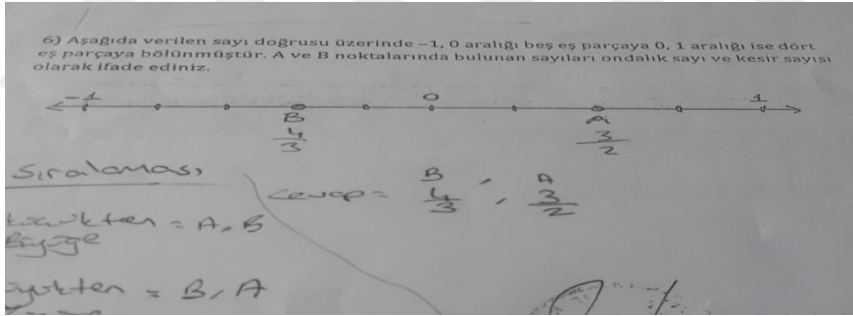 6) Aşağıda verilen sayı doğrusu üzerinde –1, 0 aralığı beş eş parçaya 0, 1 aralığı ise dört
eş parçaya bölünmüştür. A ve B noktalarında bulunan sayıları ondalık sayı ve kesir sayısı
olarak ifade ediniz.
-1 0 1
B A
4/3 3/2
Sıralaması
cevap = B 4/3 , A 3/2
küçükten = A, B
Büyüğe
= B, A